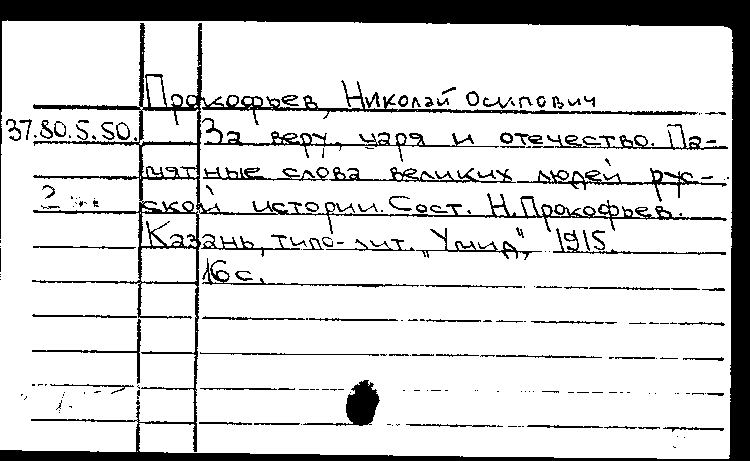 Прокофьев, Николай Осипович
37.80.5.50. За веру, царя и отечество. Па-
мятные слова великих людей рус-
ской истории. Сост. Н. Прокофьев.
Казань, типо-лит. „Умид", 1915.
16 с.